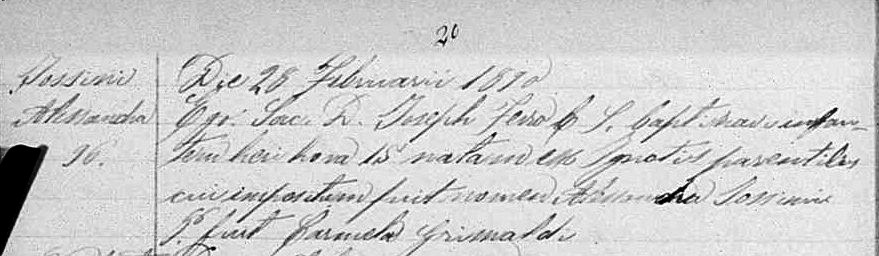 20
Sossini
Alessandra
96.
Die 28 Februarii 1870
Ego Sac. D. Joseph Ferro C. S. Baptizavi infan-
tem heri hora 15 natam ex Ignotis parentibus
cui impositum fuit nomen Alessandra Sossini
P. fuit Carmela Grimaldi